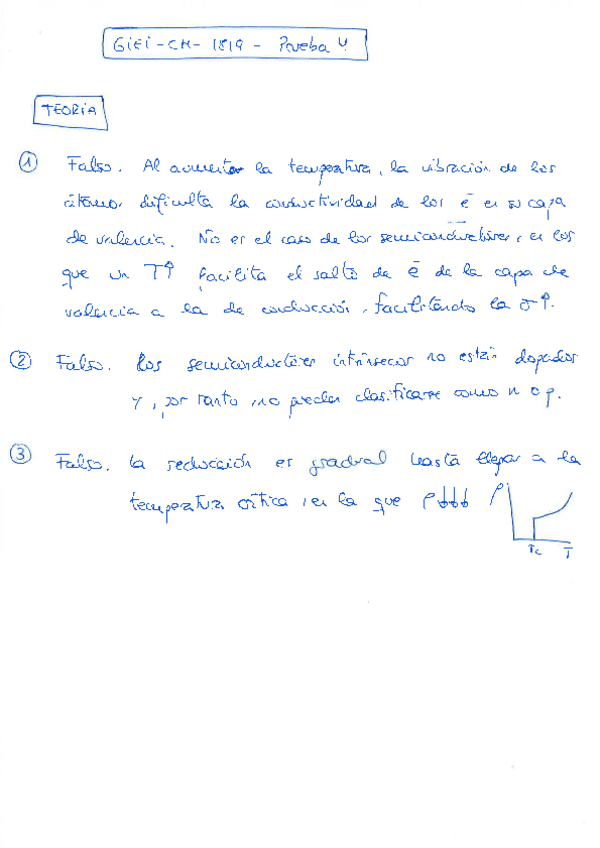 GIEI-CM-1819 - Prueba 4
TEORÍA
① Falso. Al aumentar la temperatura, la vibración de los
átomos dificulta la conductividad de los e⁻ en su capa
de valencia. No es el caso de los semiconductores, en los
que un T↑ facilita el salto de e⁻ de la capa de
valencia a la de conducción, facilitando la σ↑.
② Falso. Los semiconductores intrínsecos no están dopados
y, por tanto, no pueden clasificarse como n o p.
③ Falso. La reducción es gradual hasta llegar a la
temperatura crítica, en la que ρ↓↓↓
ρ
Tc T